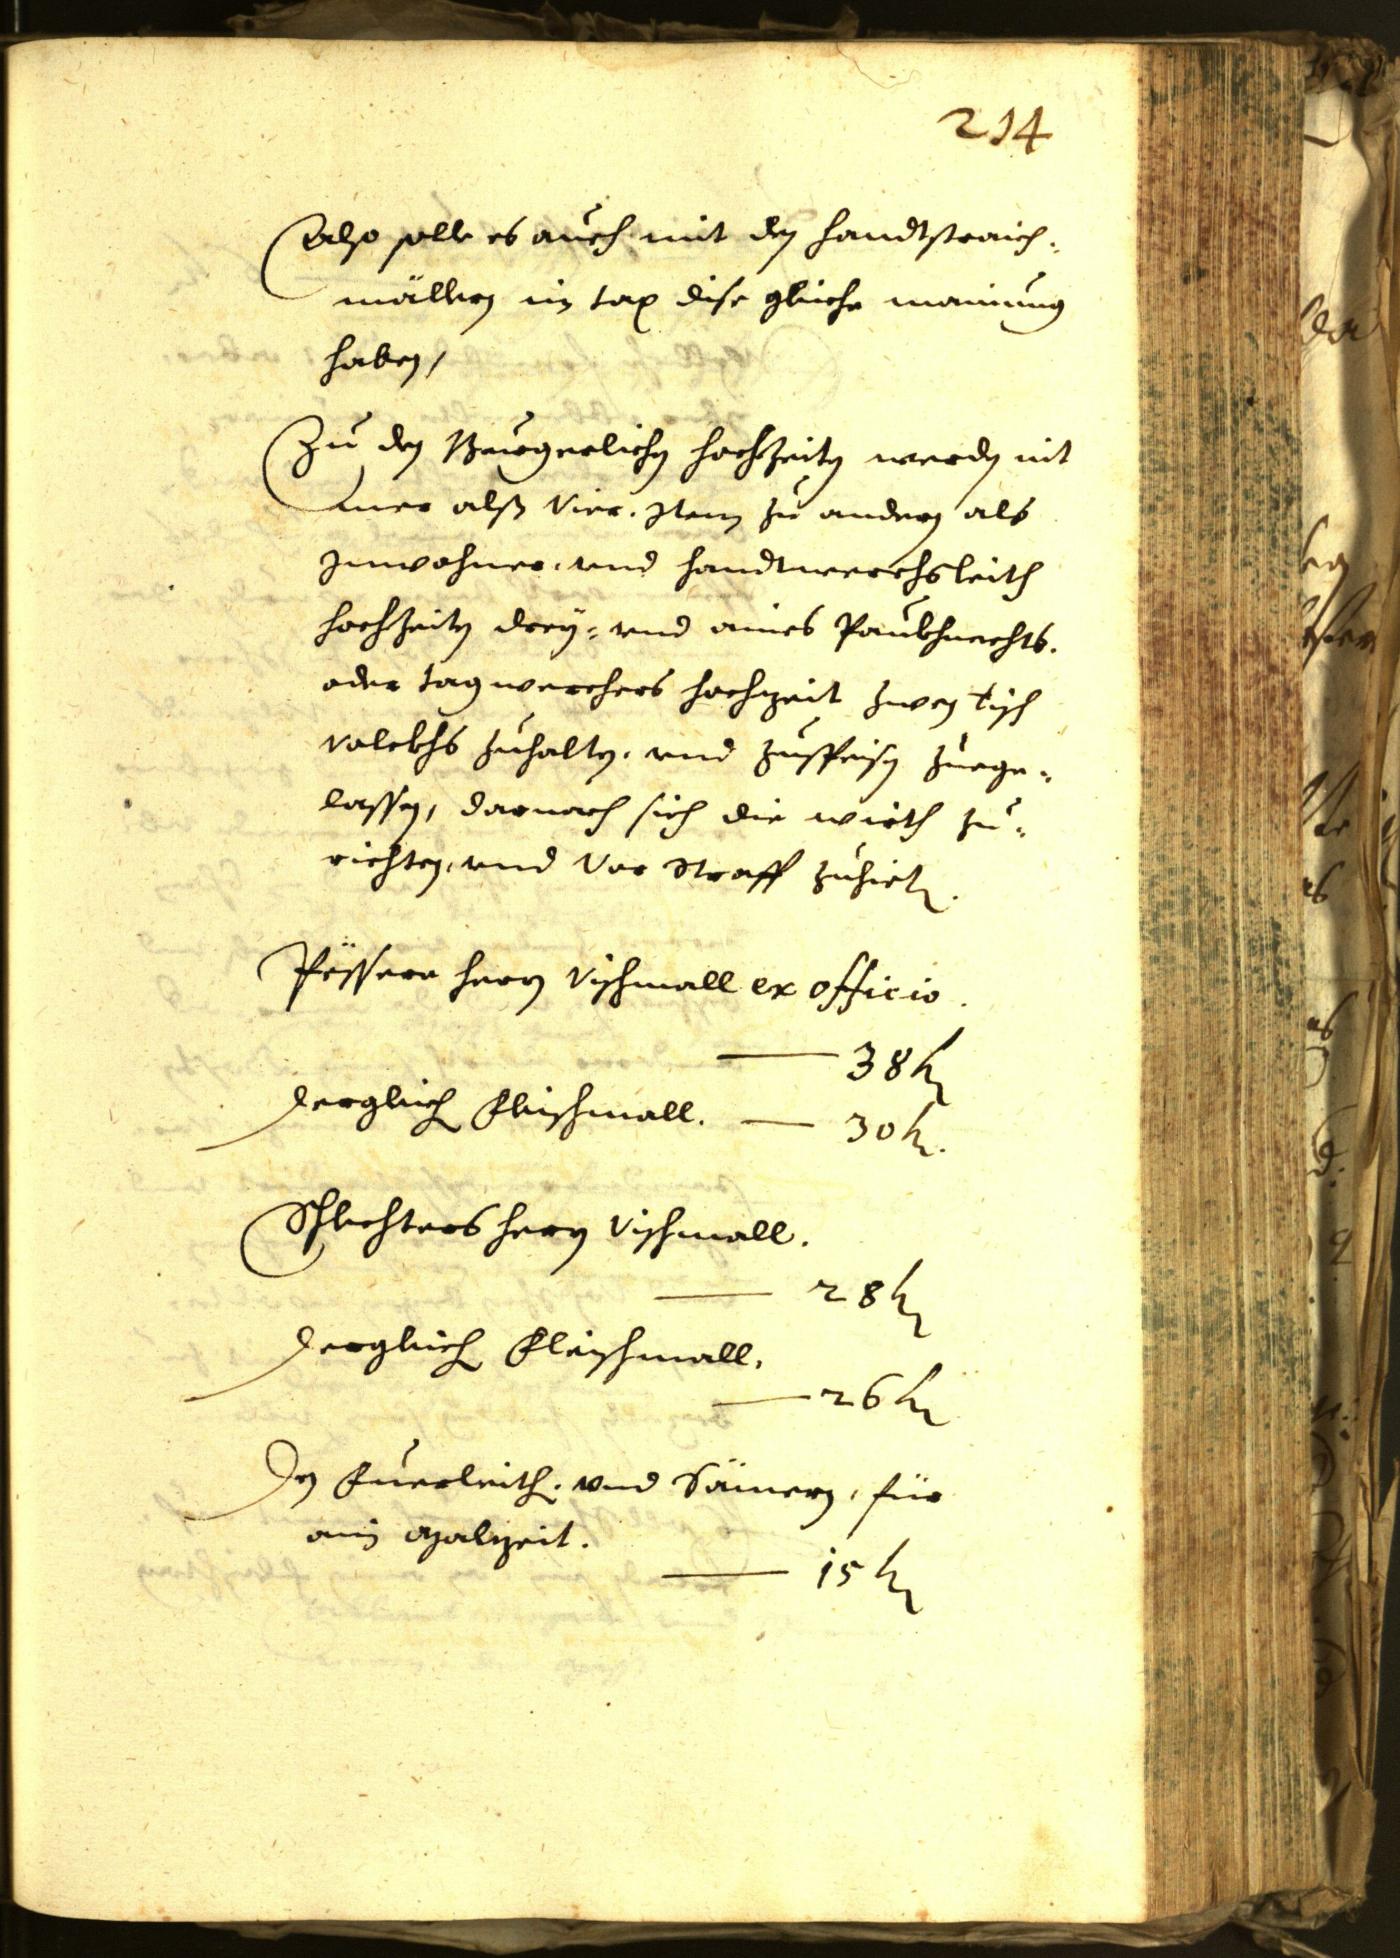 214
Also solle es auch mit den handtstraich¬
mällern in tax dise gleiche mainung
haben,
Zu den Burgerlichen hochzeiten werden nit
mer alß vier. Item zu andern als
Inwohner. und handtwerchsleith
hochzeiten drey= und aines Paukhnechts.
oder tagwerchers hochzeit zwen tisch
volckhs zuhalten. und zuspeisen zuege¬
lassen, darnach sich die wirth zu¬
richten, und vor Straff zuhieten.
Pössere herrn vischmall ex officio.
38 kr
dergleich fleischmall. 30 kr.
Schlechters herrn vischmall.
28 kr
dergleich fleischmall.
26 kr
Den fuerleith. und Sämern, für
ain malzeit.
15 kr